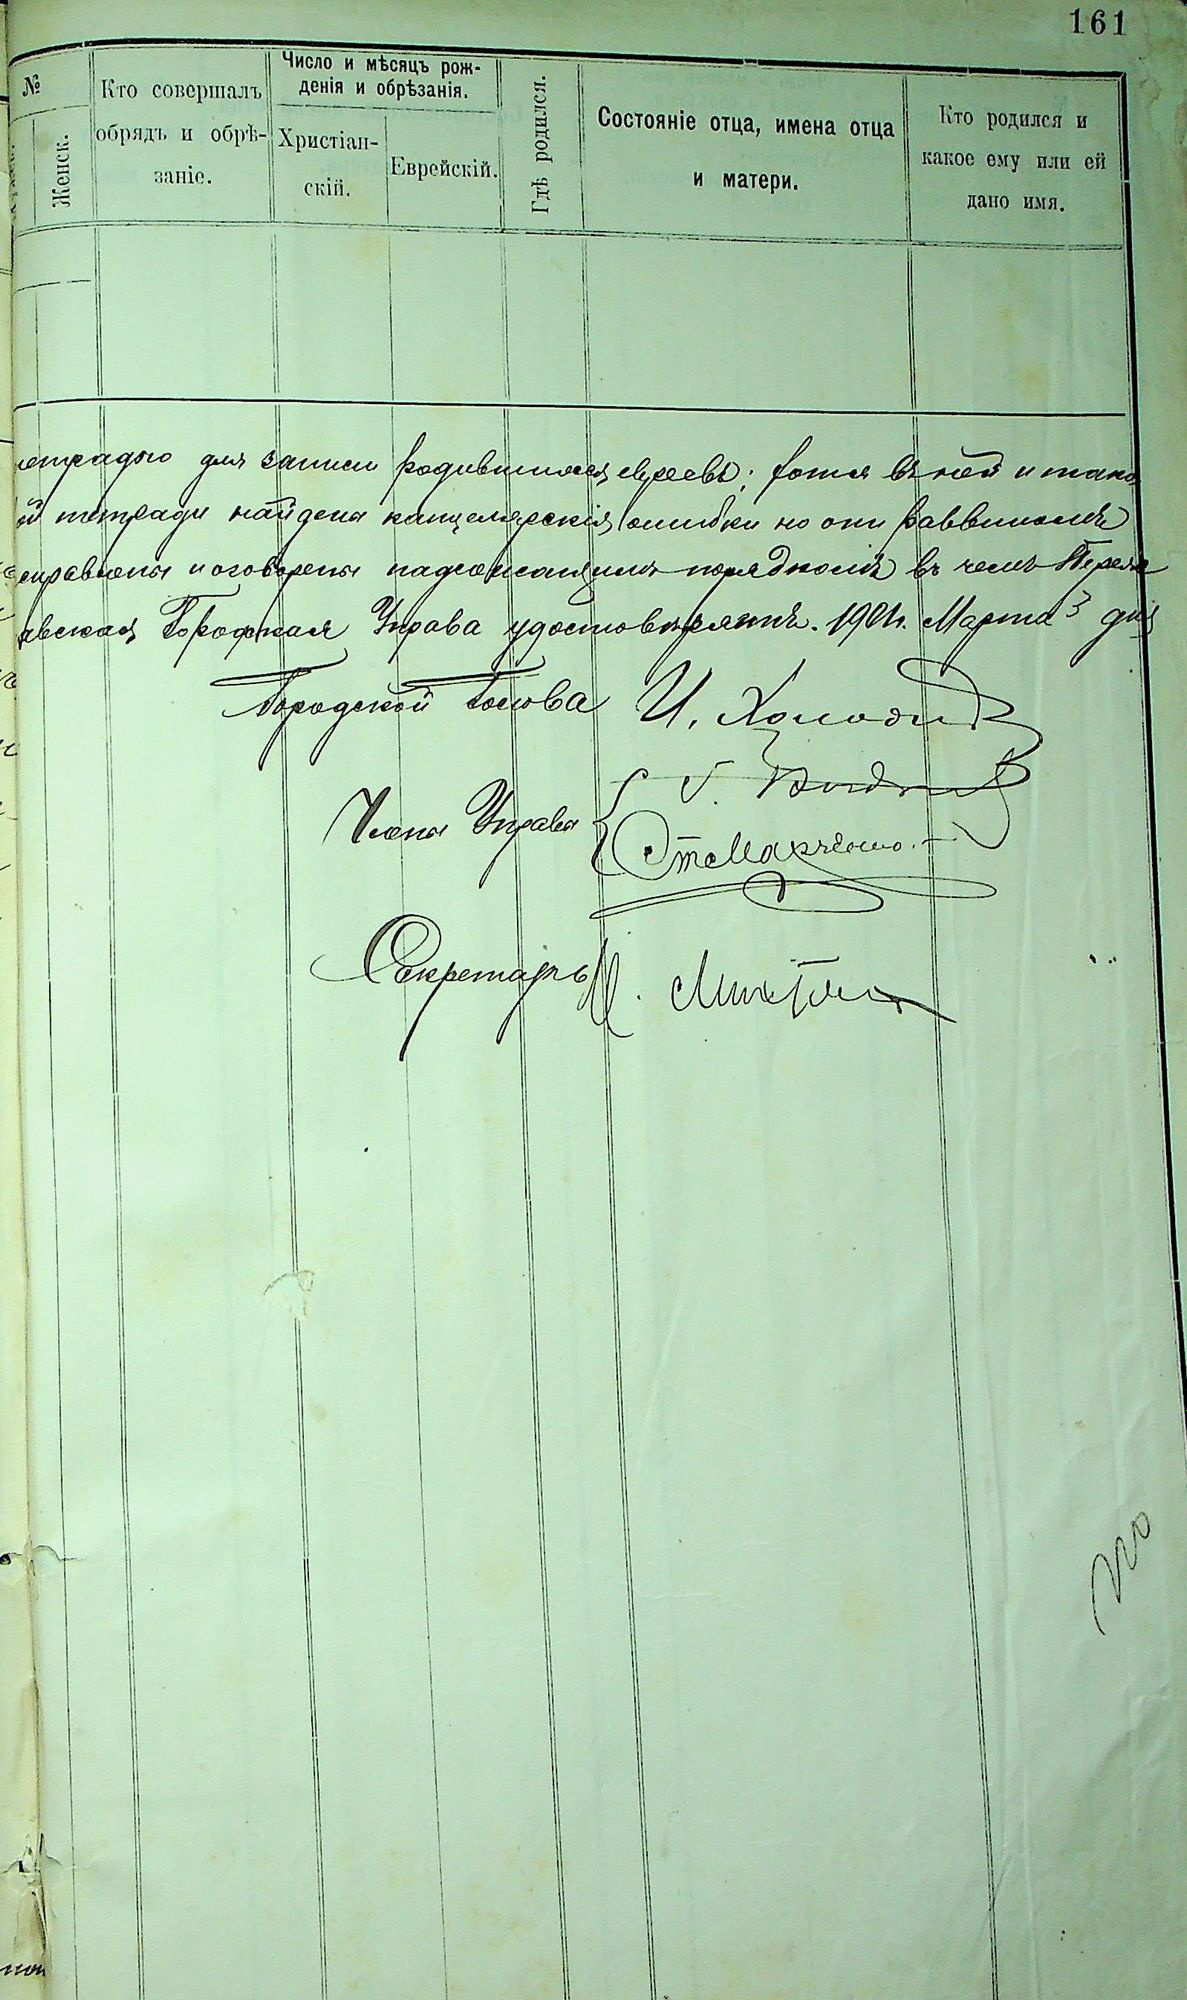 161
№
Женск.
Кто совершалъ
обрядъ и обрѣ-
заніе.
Число и мѣсяцъ рож-
денія и обрѣзанія.
Христіан-
скій.
Еврейскій.
Гдѣ родился.
Состояніе отца, имена отца
и матери.
Кто родился и
какое ему или ей
дано имя.
тетрадью для записи родившихся евреевъ; хотя въ ней и
й тетради найдены канцелярскія ошибки но они раввиномъ
справлены и оговорены надлежащимъ порядкомъ въ чемъ Перея
авская Городская Управа удостовѣряетъ. 1901г. Марта 3 дня
Городской Голова И.
Члены Управы
Секретарь